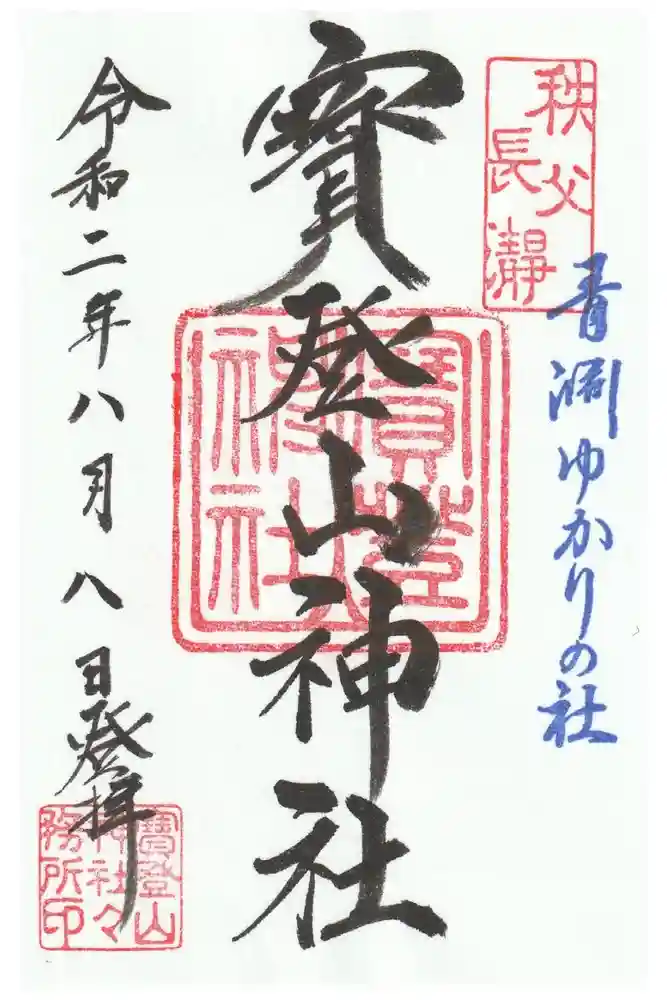 秩父
長瀞
青淵ゆかりの社
寳登山神社
寳登
神社
令和二年八月八日登拝
寳登山
神社々
務所印